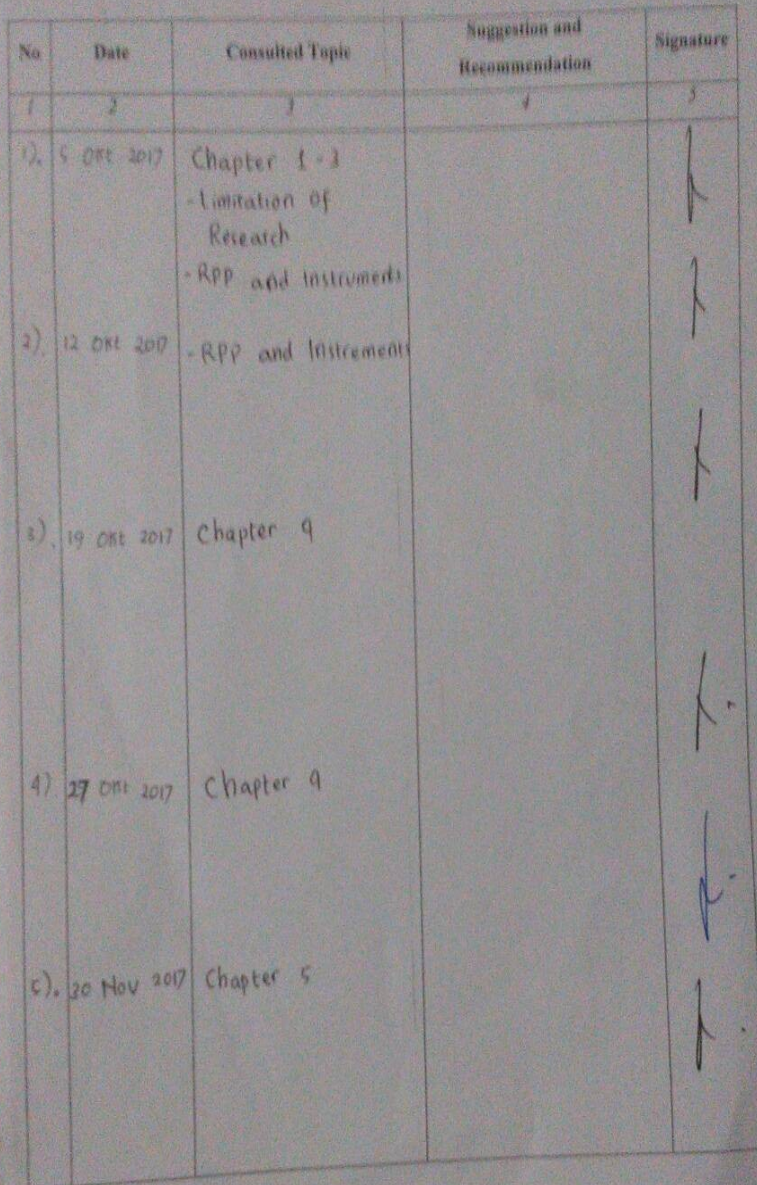 No Date Consulted Topic Suggestion and Recommendation Signature
1 2 3 4 5
1). 5 Okt 2017 Chapter 1-3
- Limitation of
Research
- RPP and Instruments
2). 12 Okt 2017 - RPP and Instrements
3). 19 Okt 2017 Chapter 4
4) 27 Okt 2017 Chapter 4
5). 30 Nov 2017 Chapter 5